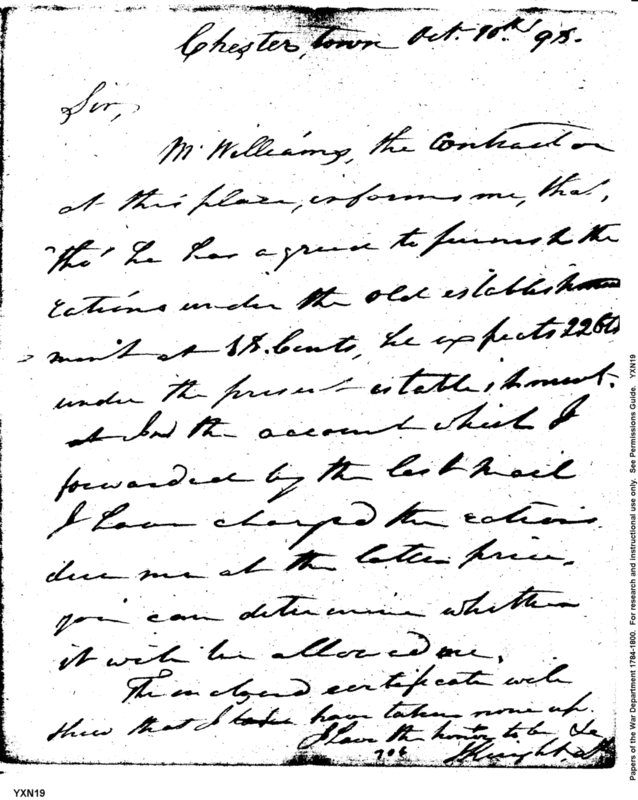 Chester, town Oct. 10th 98.
Sir,
Mr Williams, the Contractor
at this place, informs me, that,
tho' he has agreed to furnish the
rations under the old establish
ment at 18. Cents, he expects 22 Cts
under the present establishment.
the account which I
forwarded by the last Mail
I have charged the rations
due me at the latter price.
you can determine whether
it will be allowed me.
The inclosed certificate will
shew that I have taken none up.
I have the honor to be, &c
706
YXN19
Papers of the War Department 1784-1800. For research and instructional use only. See Permissions Guide. YXN19